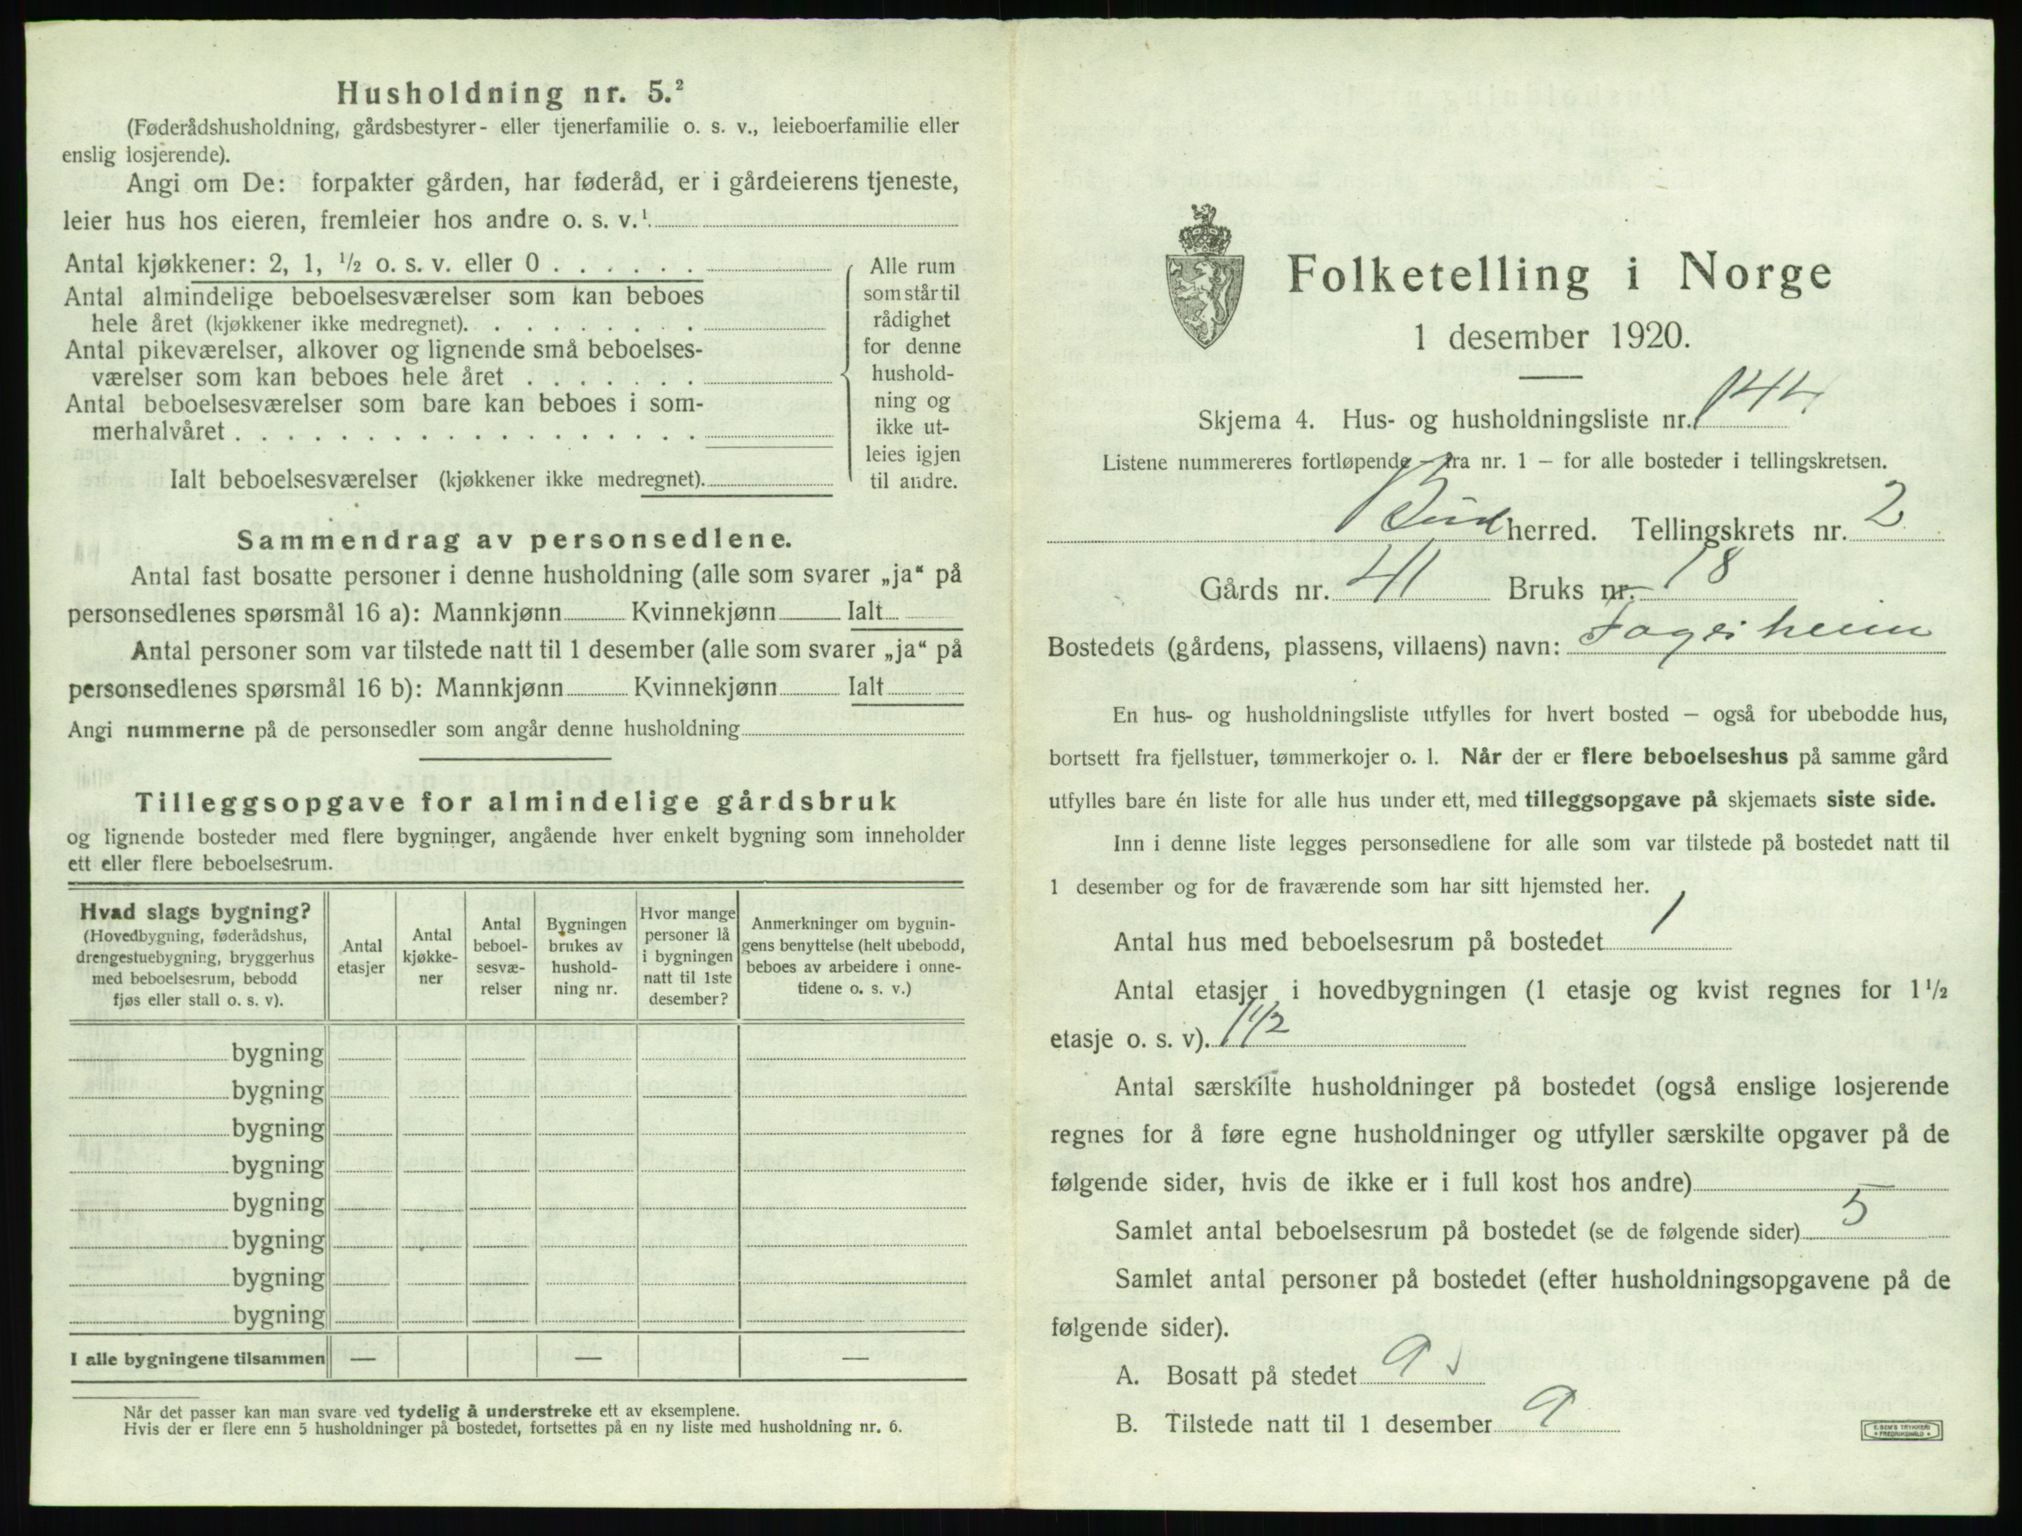 Husholdning nr. 5.²
(Føderådshusholdning, gårdsbestyrer- eller tjenerfamilie o. s. v., leieboerfamilie eller
enslig losjerende).
Angi om De: forpakter gården, har føderåd, er i gårdeierens tjeneste,
leier hus hos eieren, fremleier hos andre o. s. v.¹
Antal kjøkkener: 2, 1, ½ o. s. v. eller 0 . . . . . .
Antal almindelige beboelsesværelser som kan beboes
hele året (kjøkkener ikke medregnet). . . . . . . . .
Antal pikeværelser, alkover og lignende små beboelses-
værelser som kan beboes hele året . . . . . . .
Antal beboelsesværelser som bare kan beboes i som-
merhalvåret . . . . . . . . . . . . . . . . . .
Ialt beboelsesværelser (kjøkkener ikke medregnet).
Alle rum
som står til
rådighet
for denne
hushold-
ning og
ikke ut-
leies igjen
til andre.
Sammendrag av personsedlene.
Antal fast bosatte personer i denne husholdning (alle som svarer „ja“ på
personsedlenes spørsmål 16 a): Mannkjønn Kvinnekjønn Ialt
Antal personer som var tilstede natt til 1 desember (alle som svarer „ja“ på
personsedlenes spørsmål 16 b): Mannkjønn Kvinnekjønn Ialt
Angi nummerne på de personsedler som angår denne husholdning
Tilleggsopgave for almindelige gårdsbruk
og lignende bosteder med flere bygninger, angående hver enkelt bygning som inneholder
ett eller flere beboelsesrum.
Hvad slags bygning?
(Hovedbygning, føderådshus,
drengestuebygning, bryggerhus
med beboelsesrum, bebodd
fjøs eller stall o. s. v).
Antal
etasjer
Antal
kjøkke-
ner
Antal
beboel-
sesvæ-
relser
Bygningen
brukes av
hushold-
ning nr.
Hvor mange
personer lå
i bygningen
natt til 1ste
desember?
Anmerkninger om bygnin-
gens benyttelse (helt ubebodd,
beboes av arbeidere i onne-
tidene o. s. v.)
bygning
bygning
bygning
bygning
bygning
bygning
bygning
bygning
I alle bygningene tilsammen — — —
Når det passer kan man svare ved tydelig å understreke ett av eksemplene.
Hvis der er flere enn 5 husholdninger på bostedet, fortsettes på en ny liste med husholdning nr. 6.
Folketelling i Norge
1 desember 1920.
Skjema 4. Hus- og husholdningsliste nr. 144
Listene nummereres fortløpende – fra nr. 1 – for alle bosteder i tellingskretsen.
Bud herred. Tellingskrets nr. 2
Gårds nr. 41 Bruks nr. 18
Bostedets (gårdens, plassens, villaens) navn: Fagerheim
En hus- og husholdningsliste utfylles for hvert bosted – også for ubebodde hus,
bortsett fra fjellstuer, tømmerkojer o. l. Når der er flere beboelseshus på samme gård
utfylles bare én liste for alle hus under ett, med tilleggsopgave på skjemaets siste side.
Inn i denne liste legges personsedlene for alle som var tilstede på bostedet natt til
1 desember og for de fraværende som har sitt hjemsted her.
Antal hus med beboelsesrum på bostedet 1
Antal etasjer i hovedbygningen (1 etasje og kvist regnes for 1½
etasje o. s. v). 1½
Antal særskilte husholdninger på bostedet (også enslige losjerende
regnes for å føre egne husholdninger og utfyller særskilte opgaver på de
følgende sider, hvis de ikke er i full kost hos andre)
Samlet antal beboelsesrum på bostedet (se de følgende sider) 5
Samlet antal personer på bostedet (efter husholdningsopgavene på de
følgende sider).
A. Bosatt på stedet 9
B. Tilstede natt til 1 desember 9
E. SEM'S TRYKKERI
FREDRIKSHALD